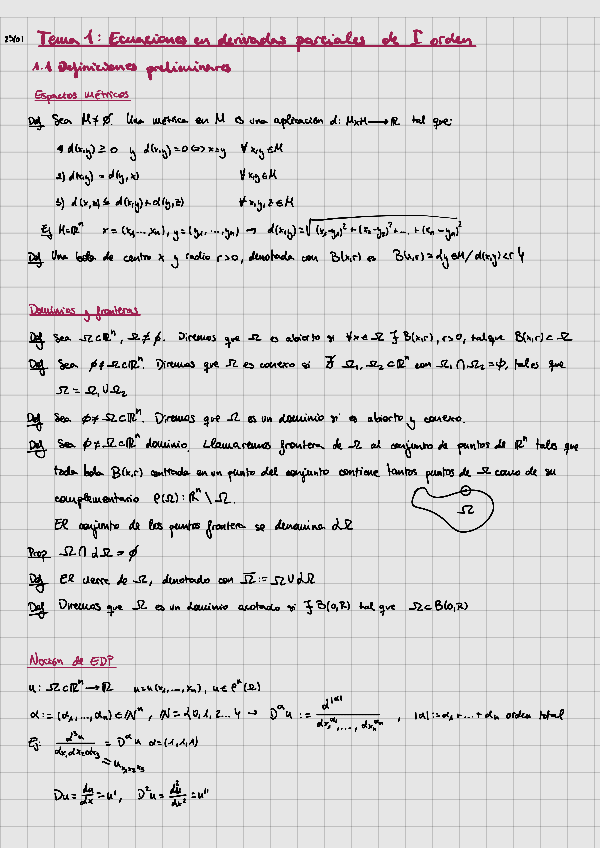 25/01 Tema 1: Ecuaciones en derivadas parciales de I orden
1.1 Definiciones preliminares
Espacios métricos
Def Sea M ≠ ∅. Una métrica en M es una aplicación d: M×M ⟶ ℝ tal que:
1) d(x,y) ≥ 0 y d(x,y) = 0 ⟺ x=y ∀x,y ∈ M
2) d(x,y) = d(y,x) ∀x,y ∈ M
3) d(x,z) ≤ d(x,y) + d(y,z) ∀x,y,z ∈ M
Ej M=ℝⁿ x = (x₁,...,xₙ), y = (y₁,...,yₙ) → d(x,y) = √((x₁-y₁)² + (x₂-y₂)² + ... + (xₙ-yₙ)²)
Def Una bola de centro x y radio r>0, denotada con B(x,r) es B(x,r) = {y∈M / d(x,y)<r}
Dominios y fronteras
Def Sea Ω⊂ℝⁿ, Ω≠∅. Diremos que Ω es abierto si ∀x∈Ω ∃ B(x,r), r>0, tal que B(x,r) ⊂ Ω
Def Sea ∅≠Ω⊂ℝⁿ. Diremos que Ω es conexo si ∄ Ω₁, Ω₂ ⊂ ℝⁿ con Ω₁ ∩ Ω₂ = ∅, tales que
Ω = Ω₁ ∪ Ω₂
Def Sea ∅≠Ω⊂ℝⁿ. Diremos que Ω es un dominio si es abierto y conexo.
Def Sea ∅≠Ω⊂ℝⁿ dominio. Llamaremos frontera de Ω al conjunto de puntos de ℝⁿ tales que
toda bola B(x,r) centrada en un punto del conjunto contiene tantos puntos de Ω como de su
complementario C(Ω): ℝⁿ \ Ω.
Ω
El conjunto de los puntos frontera se denomina ∂Ω
Prop Ω ∩ ∂Ω = ∅
Def El cierre de Ω, denotado con Ω̅ := Ω ∪ ∂Ω
Def Diremos que Ω es un dominio acotado si ∃ B(0,R) tal que Ω ⊂ B(0,R)
Noción de EDP
u: Ω⊂ℝⁿ ⟶ ℝ u=u(x₁,...,xₙ), u ∈ Cᵏ(Ω)
α := (α₁,...,αₙ) ∈ ℕⁿ, ℕ = {0,1,2...} → Dᵅu := ∂^|α| / ∂x₁^α₁,...,∂xₙ^αₙ , |α| := α₁+...+αₙ orden total
Ej: ∂³u / ∂x₁∂x₂∂x₃ = Dᵅu α=(1,1,1)
= u_x₁x₂x₃
Du = du/dx = u', D²u = d²u/dx² = u''